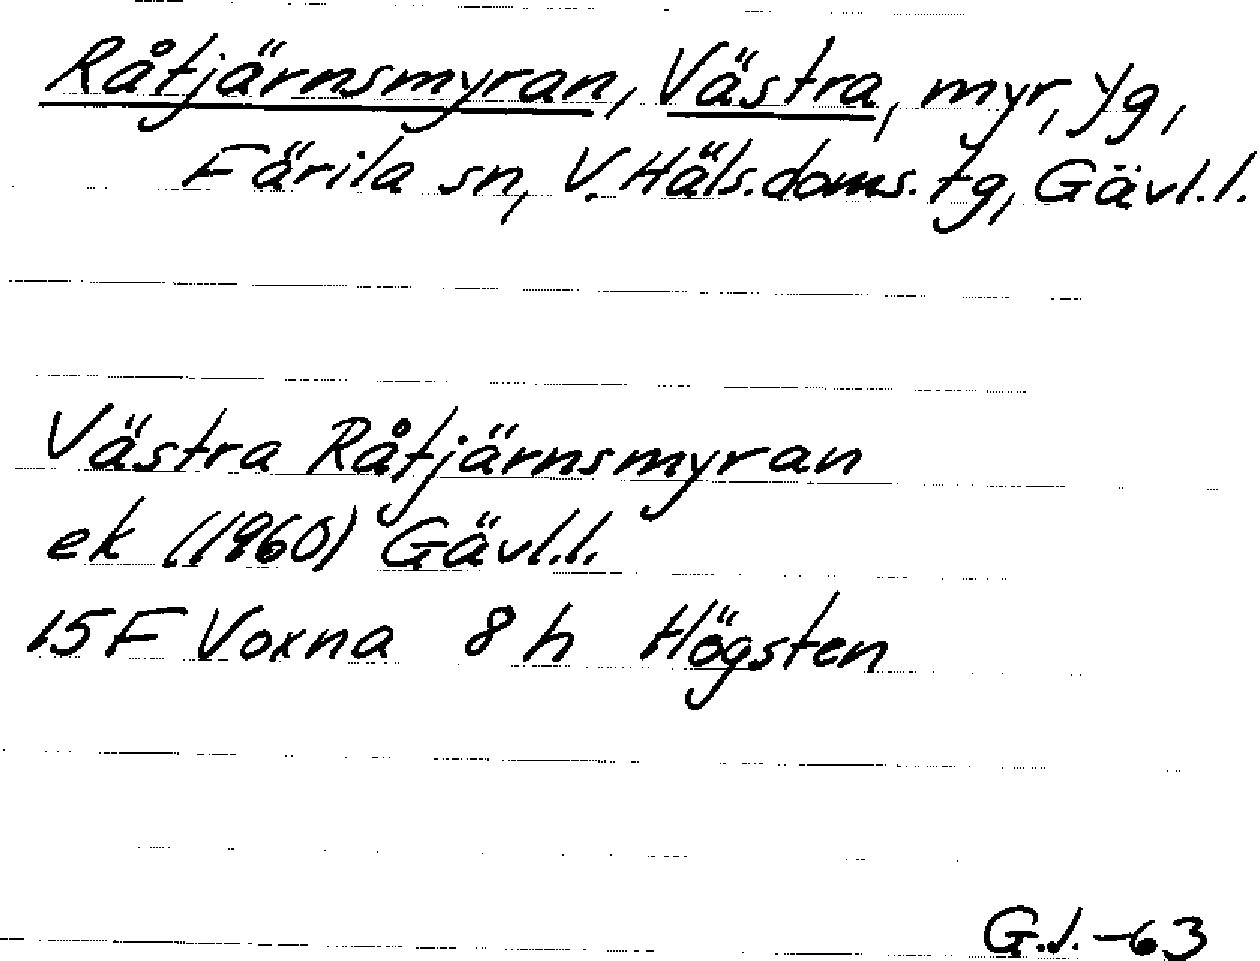 Råtjärnsmyran, Västra, myr, yg,
Färila sn, V. Häls. doms. tg, Gävl. l.
Västra Råtjärnsmyran
ek (1960) Gävl. l.
15F Voxna 8 h Högsten
G.J. -63